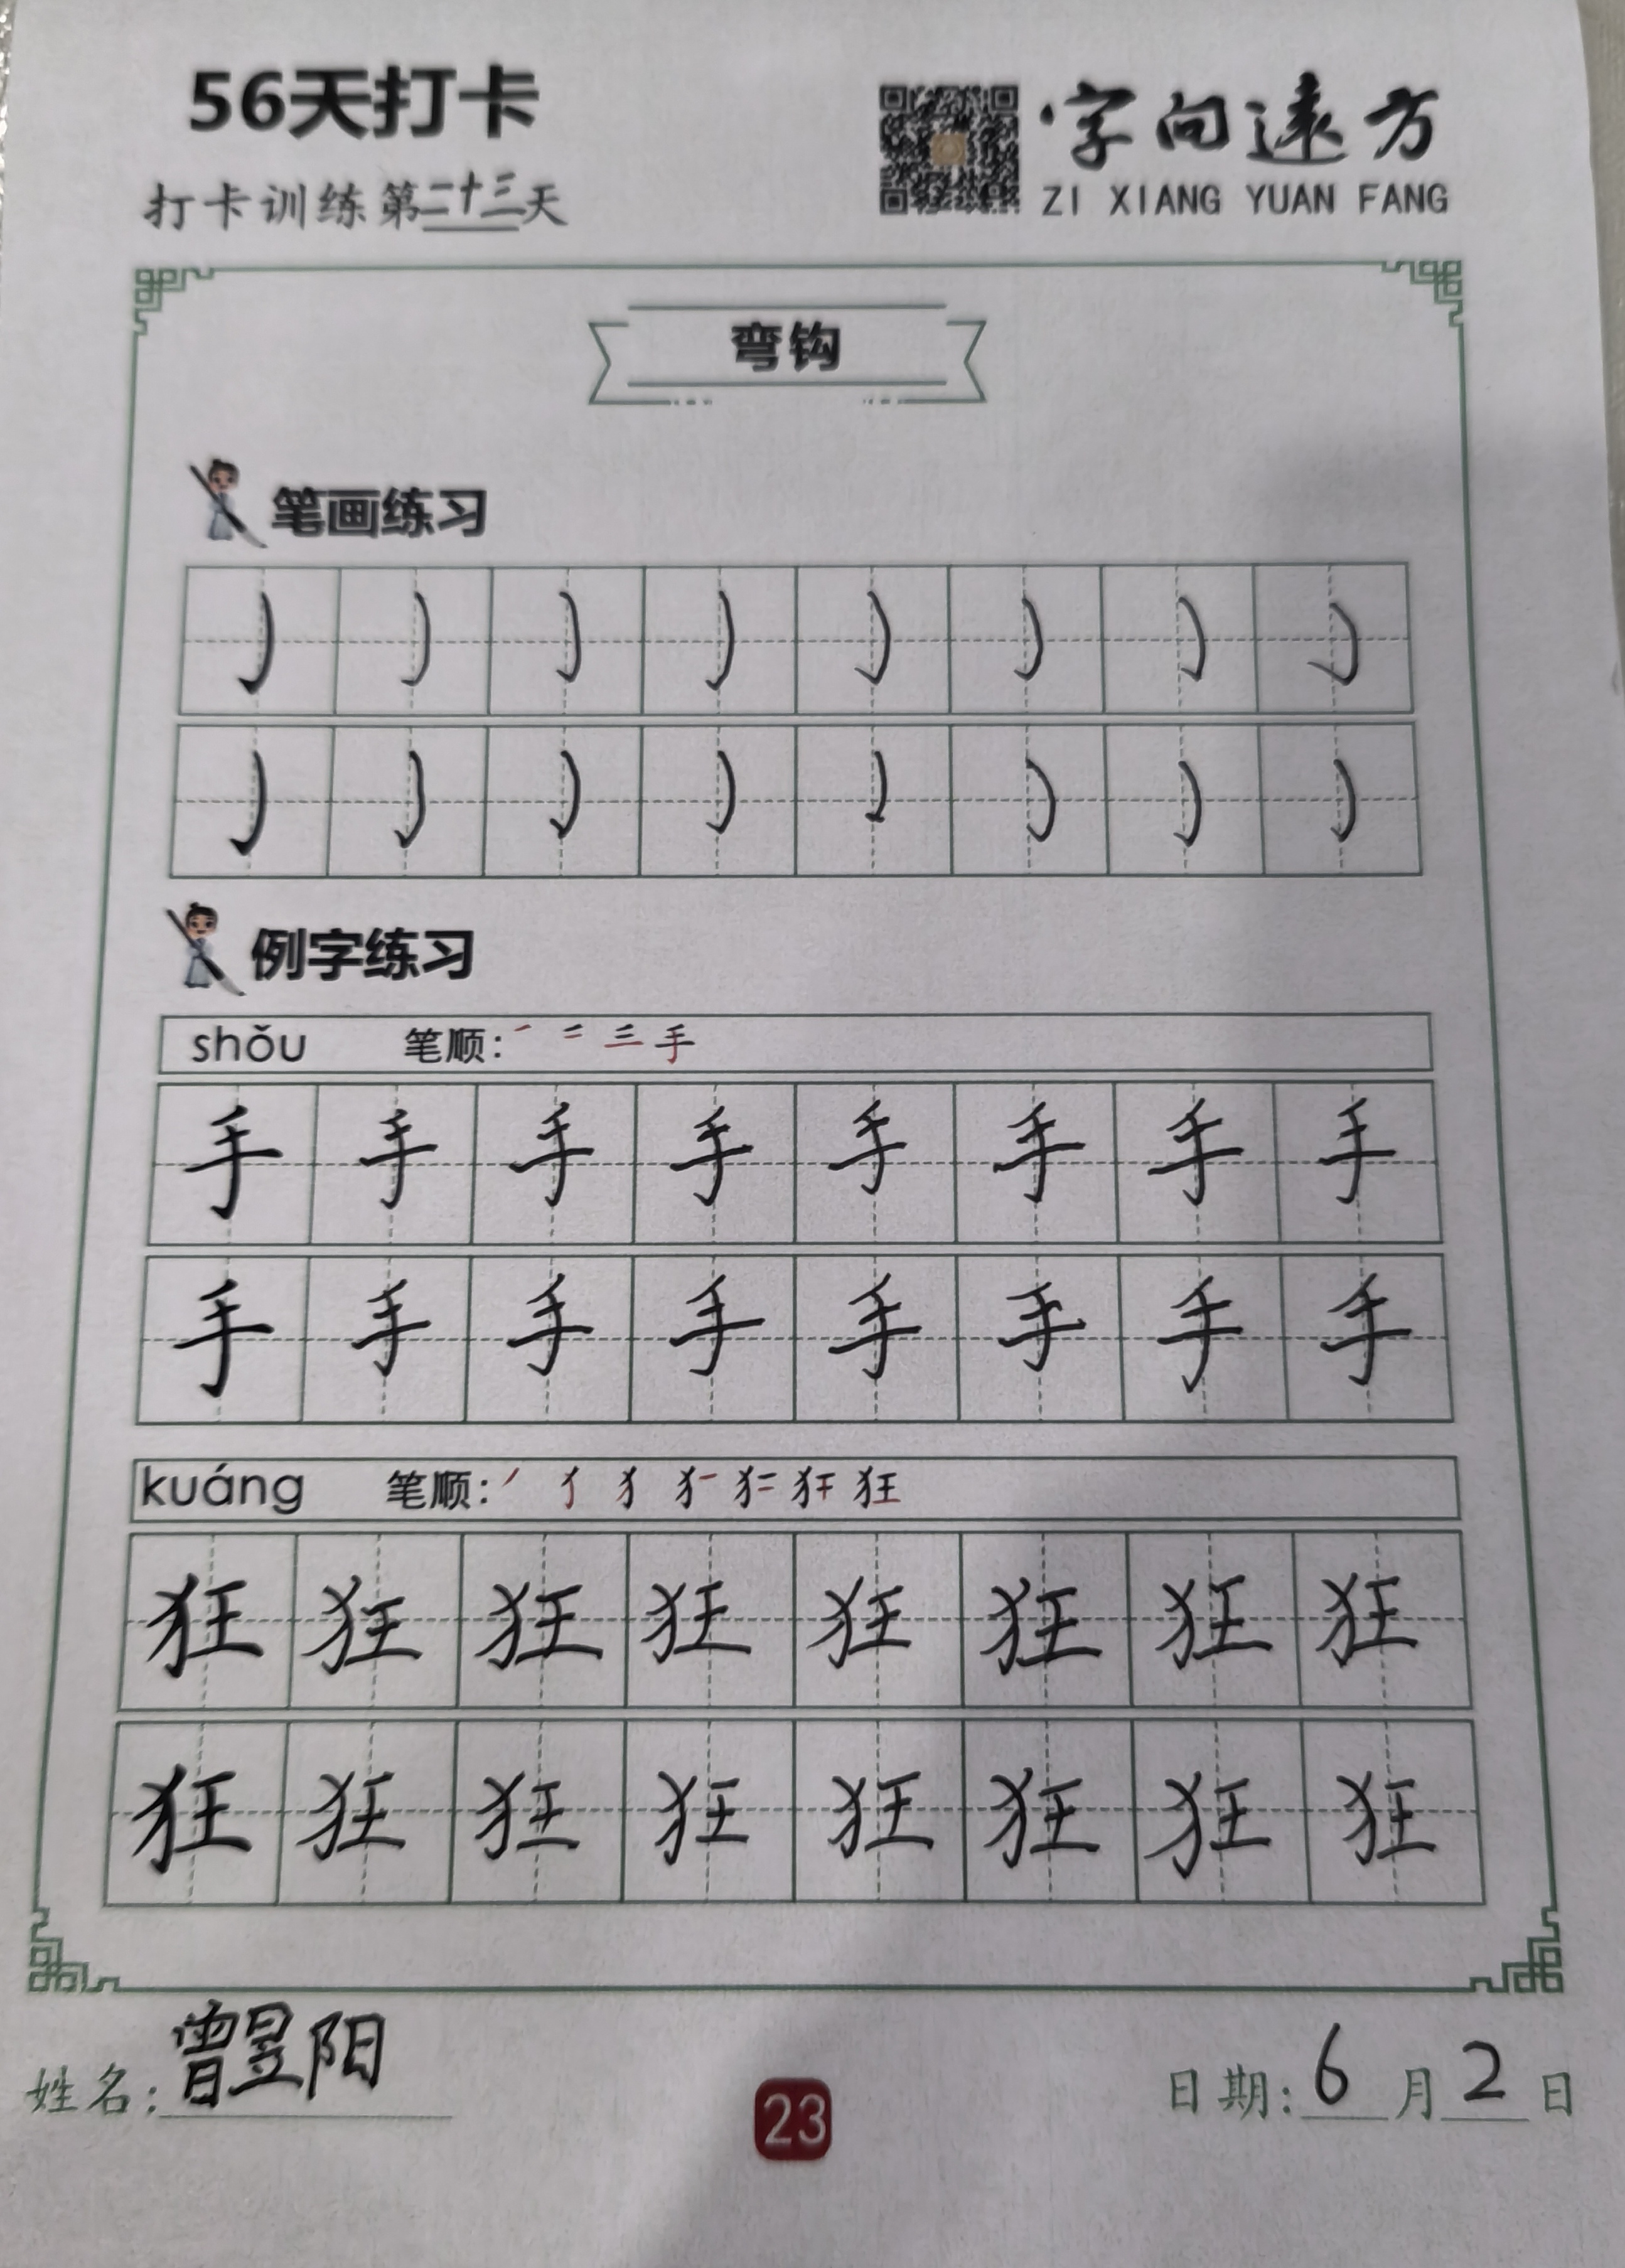 56天打卡
字向远方
打卡训练第二十三天
ZI XIANG YUAN FANG
弯钩
笔画练习
例字练习
shǒu 笔顺: 手
手 手 手 手 手 手 手 手
手 手 手 手 手 手 手 手
kuáng 笔顺: 狂
狂 狂 狂 狂 狂 狂 狂 狂
狂 狂 狂 狂 狂 狂 狂 狂
姓名: 曾昱阳
23
日期: 6月2日